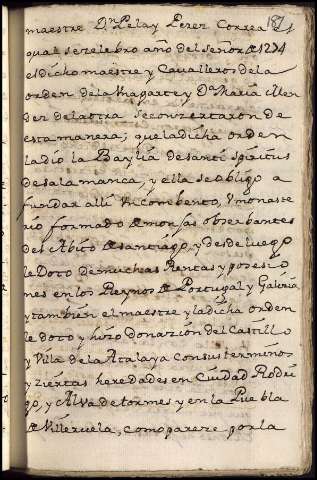 187
maestre Dn Pelay Perez Correa el
qual se zelebro año del señor de 1274
el dicho maestre y Cavalleros de la
orden de la una parte y Da Maria Men
dez de la otra se conzertaron de
esta manera; que la dicha orden
la dio la Baylia de santi spiritus
de salamanca, y ella se obligo a
fundar alli un combento, u monaste
rio formado de monjas obserbantes
del Abito de santiago, y desde luego
le Doto de muchas Rentas y posesio
nes en los Reynos de Portugal y Galizia
y tambien el maestre y la dicha orden
le doto y hizo donazion del Castillo
y Villa de la Atalaya con sus terminos
y ziertas heredades en Ciudad Rodri
go, y Alva de tormes y en la Puebla
de Villezuela, como pareze por la